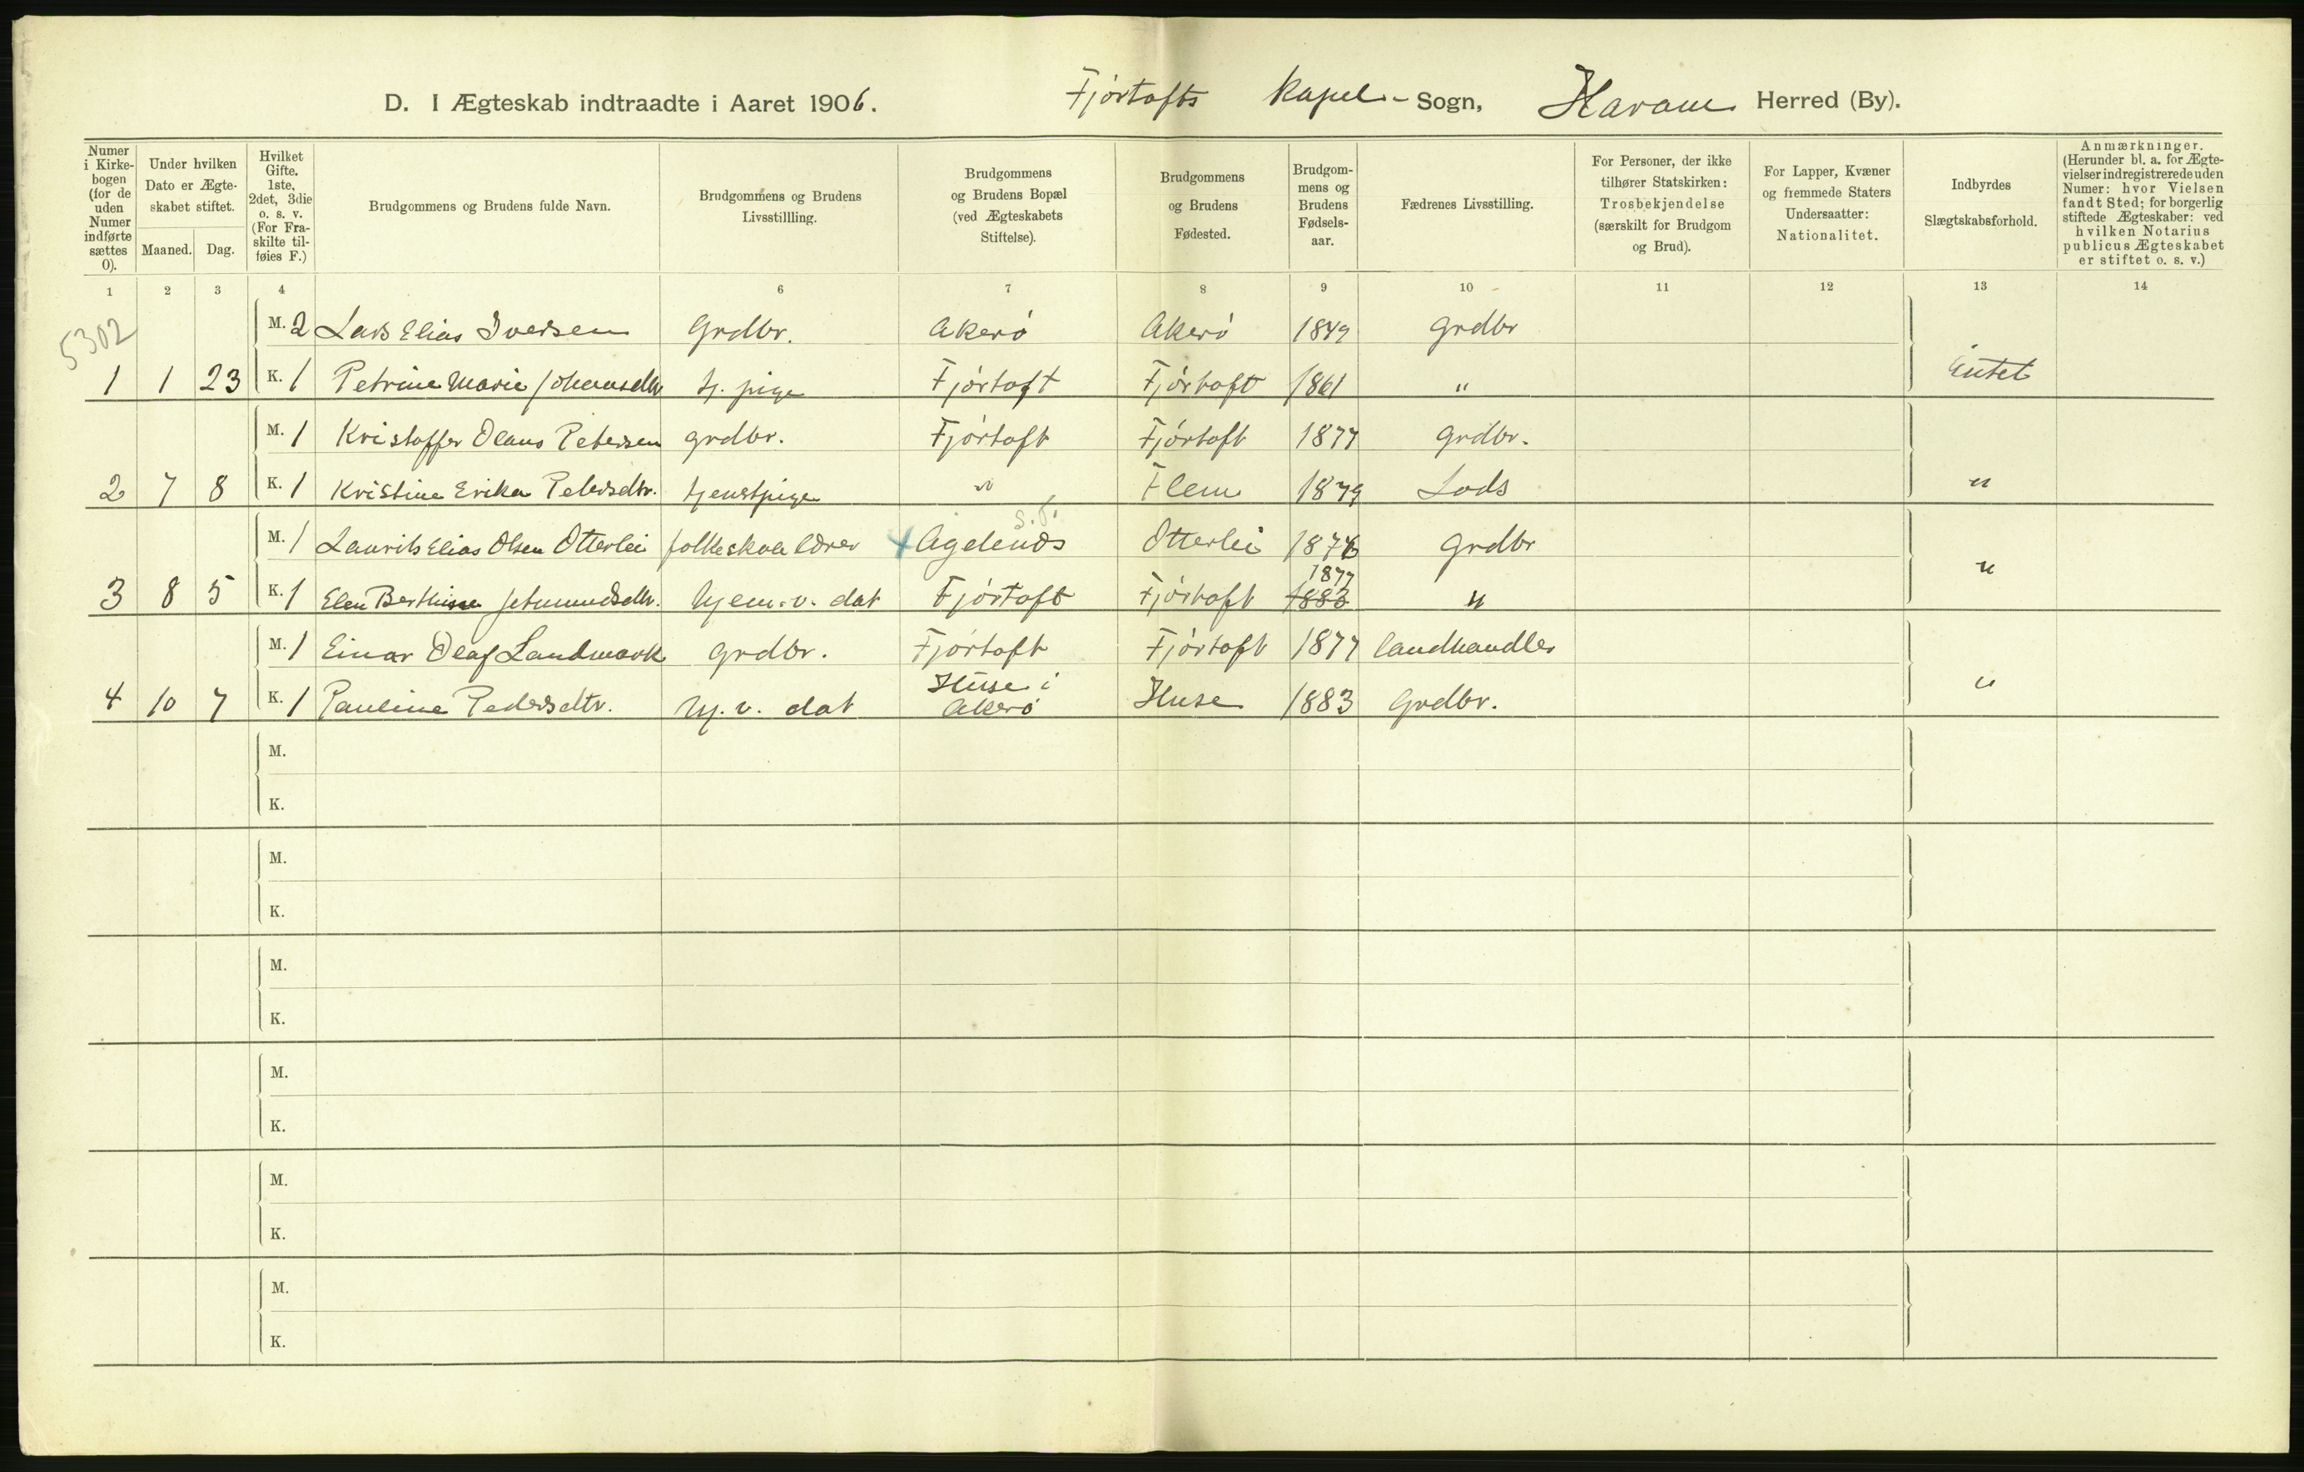 D. I Ægteskab indtraadte i Aaret 1906. Fjørtofts Kapel - Sogn, Haram Herred (By).
Numer i Kirke-bogen (for de uden Numer indførte sættes 0).
Under hvilken Dato er Ægte-skabet stiftet.
Maaned. Dag.
Hvilket Gifte. 1ste, 2det, 3die o. s. v. (For Fra-skilte til-føies F.)
Brudgommens og Brudens fulde Navn.
Brudgommens og Brudens Livsstillling.
Brudgommens og Brudens Bopæl (ved Ægteskabets Stiftelse).
Brudgommens og Brudens Fødested.
Brudgom-mens og Brudens Fødsels-aar.
Fædrenes Livsstilling.
For Personer, der ikke tilhører Statskirken: Trosbekjendelse (særskilt for Brudgom og Brud).
For Lapper, Kvæner og fremmede Staters Undersaatter: Nationalitet.
Indbyrdes Slægtskabsforhold.
Anmærkninger. (Herunder bl. a. for Ægte-vielser indregistrerede uden Numer: hvor Vielsen fandt Sted; for borgerlig stiftede Ægteskaber: ved hvilken Notarius publicus Ægteskabet er stiftet o. s. v.)
1 2 3 4 6 7 8 9 10 11 12 13 14
5302
M. 2 Lars Elias Iversen Grdbr. Akerø Akerø 1849 Grdbr
1 1 23 K. 1 Petrine Marie Johansdtr tj. pige Fjørtoft Fjørtoft 1861 " Intet
M. 1 Kristoffer Olaus Petersen grdbr. Fjørtoft Fjørtoft 1877 Grdbr.
2 7 8 K. 1 Kristine Erika Pedersdtr. tjenstpige " Flem 1879 Lods "
S. F.
M. 1 Laurits Elias Olsen Otterlei folkeskolelærer Agdenes Otterlei 1876 Grdbr
1877
3 8 5 K. 1 Elen Berthine Jetmundsdtr. hjem. v. dat Fjørtoft Fjørtoft 1883 " "
M. 1 Einar Olaf Landmark Grdbr. Fjørtoft Fjørtoft 1877 landhandler
4 10 7 K. 1 Pauline Pedersdtr. hj. v. dat Huse i Akerø Huse 1883 Grdbr. "
M.
K.
M.
K.
M.
K.
M.
K.
M.
K.
M.
K.